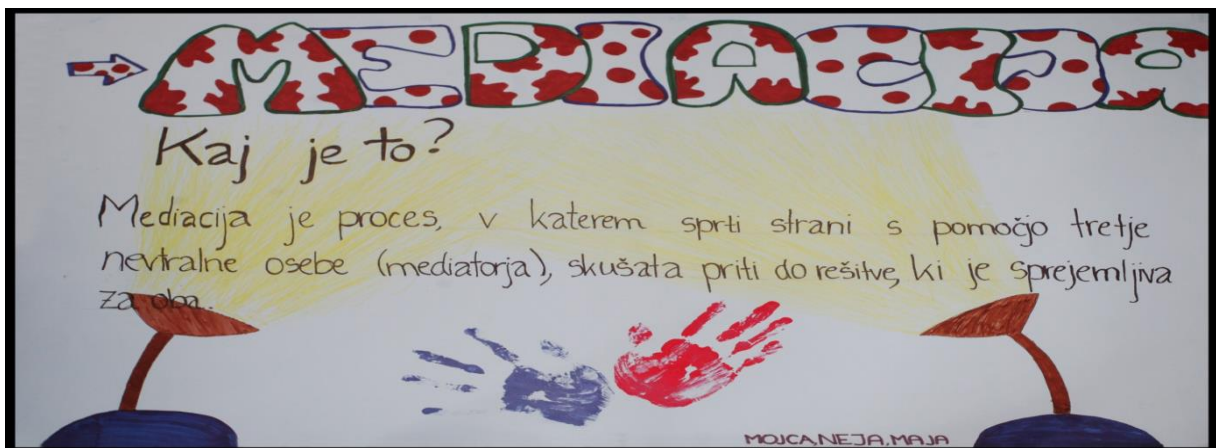 MEDIACIJA
Kaj je to?
Mediacija je proces, v katerem sprti strani s pomočjo tretje
nevtralne osebe (mediatorja), skušata priti do rešitve, ki je sprejemljiva
za oba.
MOJCA, NEJA, MAJA